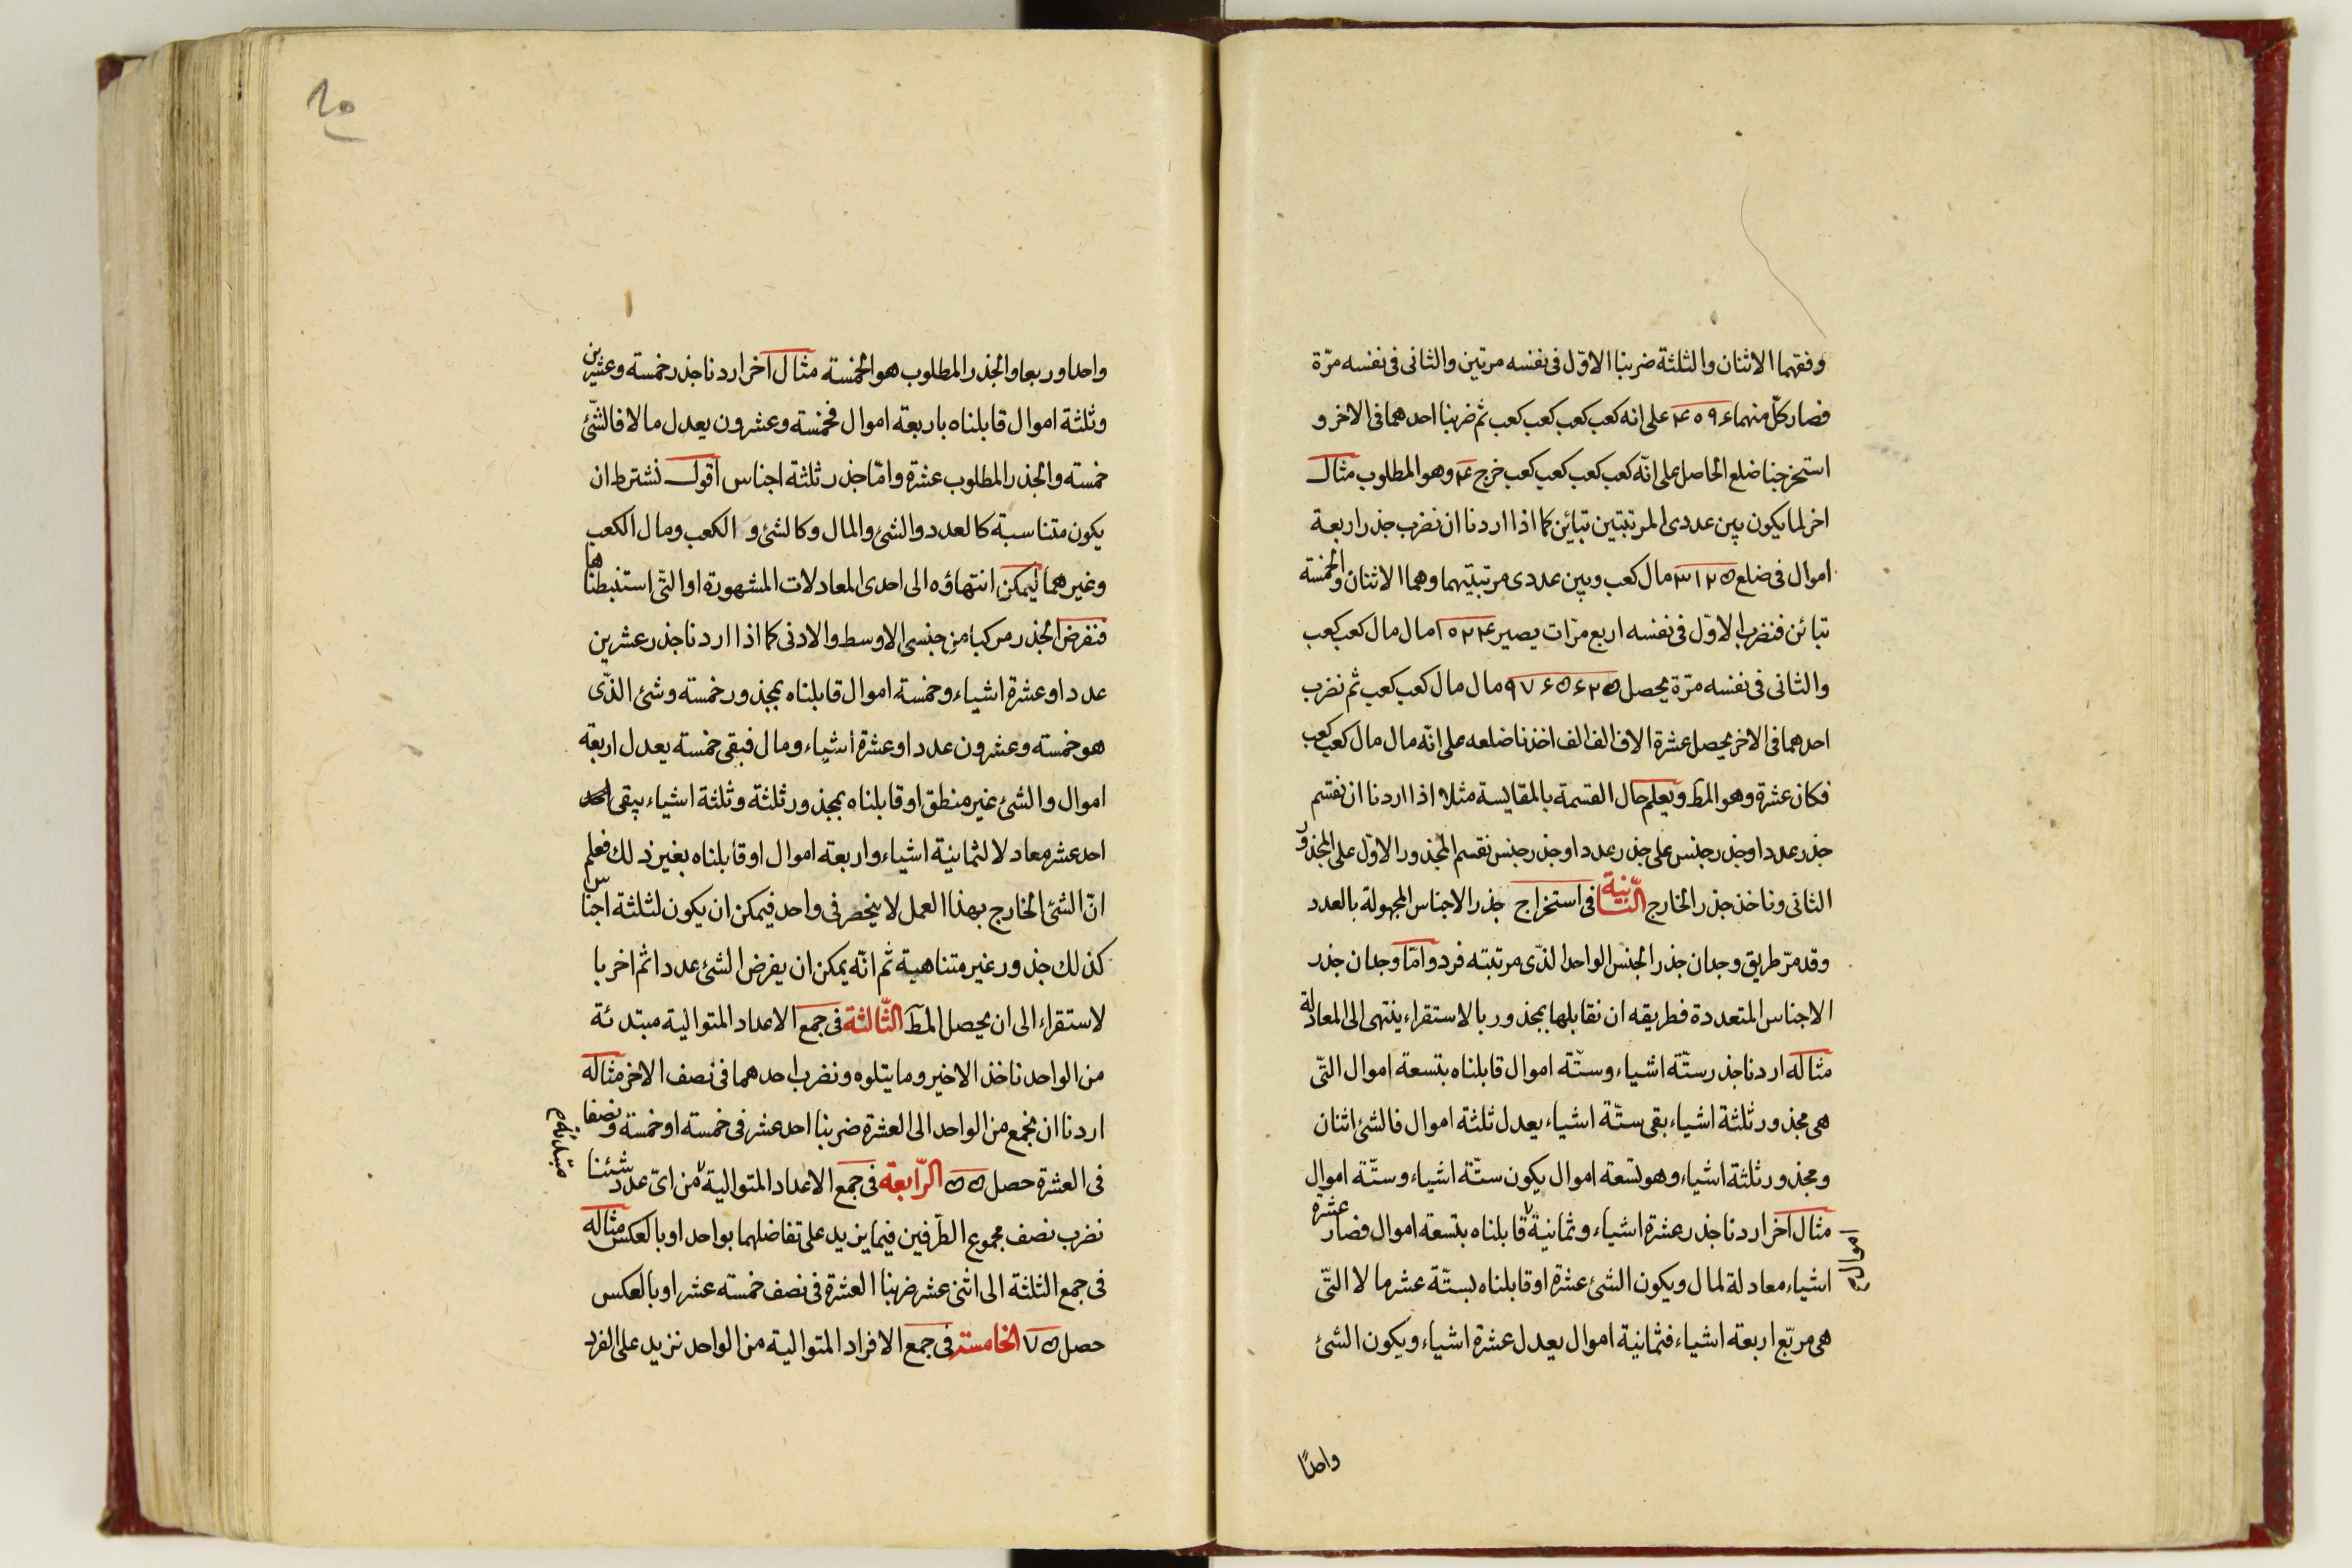 وفقهما الاثنان والثلثة ضربنا الاوّل فى نفسه مرتين والثانى فى نفسه مرّة
فصار كلّ منهما ۴۰۹۶ على انه كعب كعب كعب كعب ثم ضربنا احدهما فى الاخر و
استخرجنا ضلع الحاصل على انّه كعب كعب كعب كعب خرج ۴ وهو المطلوب مثال
اخر لما يكون بين عددى المرتبتين تباين كما اذا اردنا ان نضرب جذر اربعة
اموال فى ضلع ۳۱۲۵ مال كعب وبين عددى مرتبتيهما وهما الاثنان والخمسة
تبائن فنضرب الاوّل فى نفسه اربع مرّات يصير ۱۰۲۴ مال مال كعب كعب
والثانى فى نفسه مرّة يحصل ۹۷۶۵۶۲۵ مال مال كعب كعب ثم نضرب
احدهما فى الاخر يحصل عشرة الاف الف الف اخذنا ضلعه على انّه مال مال كعب كعب
فكان عشرة وهو المط ويعلم حال القسمة بالمقايسة مثلا اذا اردنا ان نقسم
جذر عدد او جذر جنس على جذر عدد او جذر جنس نقسم المجذور الاوّل على المجذور
الثانى وناخذ جذر الخارج الثّانية فى استخراج جذر الاجناس المجهولة بالعدد
وقد مرّ طريق وجدان جذر الجنس الواحد الذّى مرتبته فرد وامّا وجدان جذر
الاجناس المتعددة فطريقه ان نقابلها بمجذور بالاستقراء ينتهى الى المعادلة
مثاله اردنا جذر ستّة اشياء وستّة اموال قابلناه بتسعة اموال التّى
هى مجذور ثلثة اشياء بقى ستّة اشياء يعدل ثلثة اموال فالشئ اثنان
ومجذور ثلثة اشياء وهو تسعة اموال يكون ستّة اشياء وستّة اموال
مثال اخر اردنا جذر عشرة اشياء وثمانية قابلناه بتسعة اموال فصار عشرة
اموال
اشياء معادلة لمال ويكون الشئ عشرة او قابلناه بستّة عشر مالا التّى
هى مربّع اربعة اشياء فثمانية اموال يعدل عشرة اشياء ويكون الشئ
واحدًا
واحدا وربعا والجذر المطلوب هو الخمسة مثال اخر اردنا جذر خمسة وعشرين
وثلثة اموال قابلناه باربعة اموال فخمسة وعشرون يعدل مالا فالشّئ
خمسة والجذر المطلوب عشرة وامّا جذر ثلثة اجناس اقول نشترط ان
يكون متناسبة كالعدد والشئ والمال وكالشئ و الكعب ومال الكعب
وغيرهما ليمكن انتهاؤه الى احدى المعادلات المشهورة او التّى استنبطناها
فنفرض الجذر مركبا من جنسى الاوسط والادنى كما اذا اردنا جذر عشرين
عددا وعشرة اشياء وخمسة اموال قابلناه بمجذور خمسة وشئ الذّى
هو خمسة وعشرون عددا وعشرة اشياء ومال فبقى خمسة يعدل اربعة
اموال والشئ غير منطق او قابلناه بمجذور ثلثة وثلثة اشياء يبقى
احد عشر معادلا لثمانية اشياء واربعة اموال او قابلناه بغير ذلك فعلم
انّ الشئ الخارج بهذا العمل لا ينحصر فى واحد فيمكن ان يكون لثلثة اجناس
كذلك جذور غير متناهية ثم انّه يمكن ان يفرض الشئ عددا ثم اخر با
لاستقراء الى ان يحصل المط الثّالثة فى جمع الاعداد المتوالية مبتدئة
من الواحد ناخذ الاخير وما يتلوه ونضرب احدهما فى نصف الاخر مثاله
اردنا ان نجمع من الواحد الى العشرة ضربنا احد عشر فى خمسة او خمسة ونصفا
فى العشرة حصل ۵۵ الرّابعة فى جمع الاعداد المتوالية من اىّ عدد شئنا
مبتدئة
نضرب نصف مجموع الطّرفين فيما يزيد على تفاضلهما بواحد او بالعكس مثاله
فى جمع الثلثة الى اثنى عشر ضربنا العشرة فى نصف خمسة عشر او بالعكس
حصل ۷۵ الخامسة فى جمع الافراد المتوالية من الواحد نزيد على الفرد